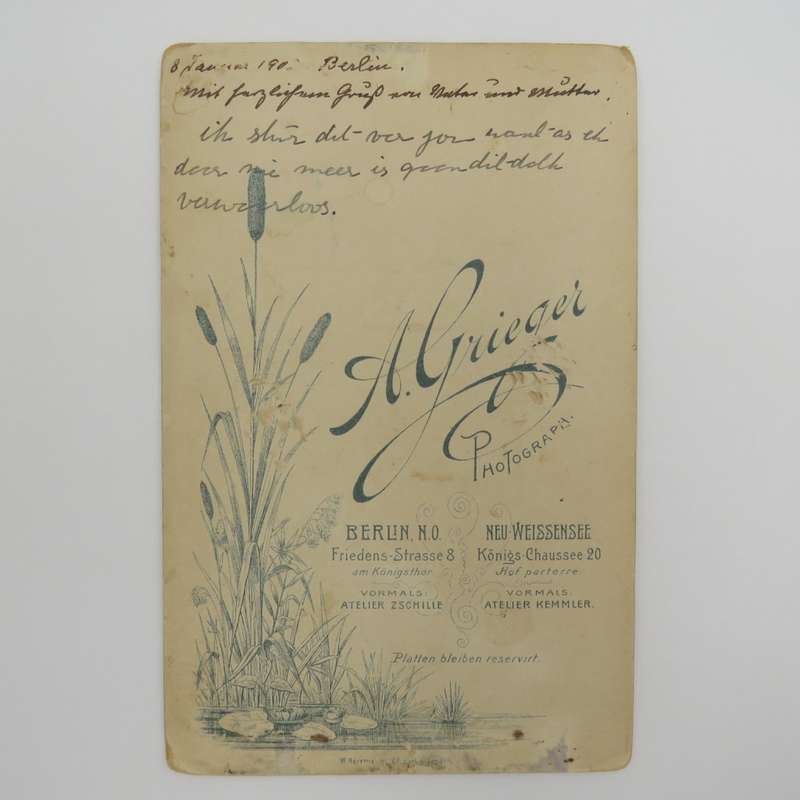 8 Januar 190 Berlin.
Mit herzlichem Gruß von Vater und Mutter.
ik stür det vor jou want as ek
daar nie meer is gaan dit dalk
verwaarloos.
A. Grieger
PHOTOGRAPH.
BERLIN, N.O.
Friedens-Strasse 8
am Königsthor
VORMALS:
ATELIER ZSCHILLE
NEU-WEISSENSEE
Königs-Chaussee 20
Hof parterre
VORMALS:
ATELIER KEMMLER.
Platten bleiben reservirt.